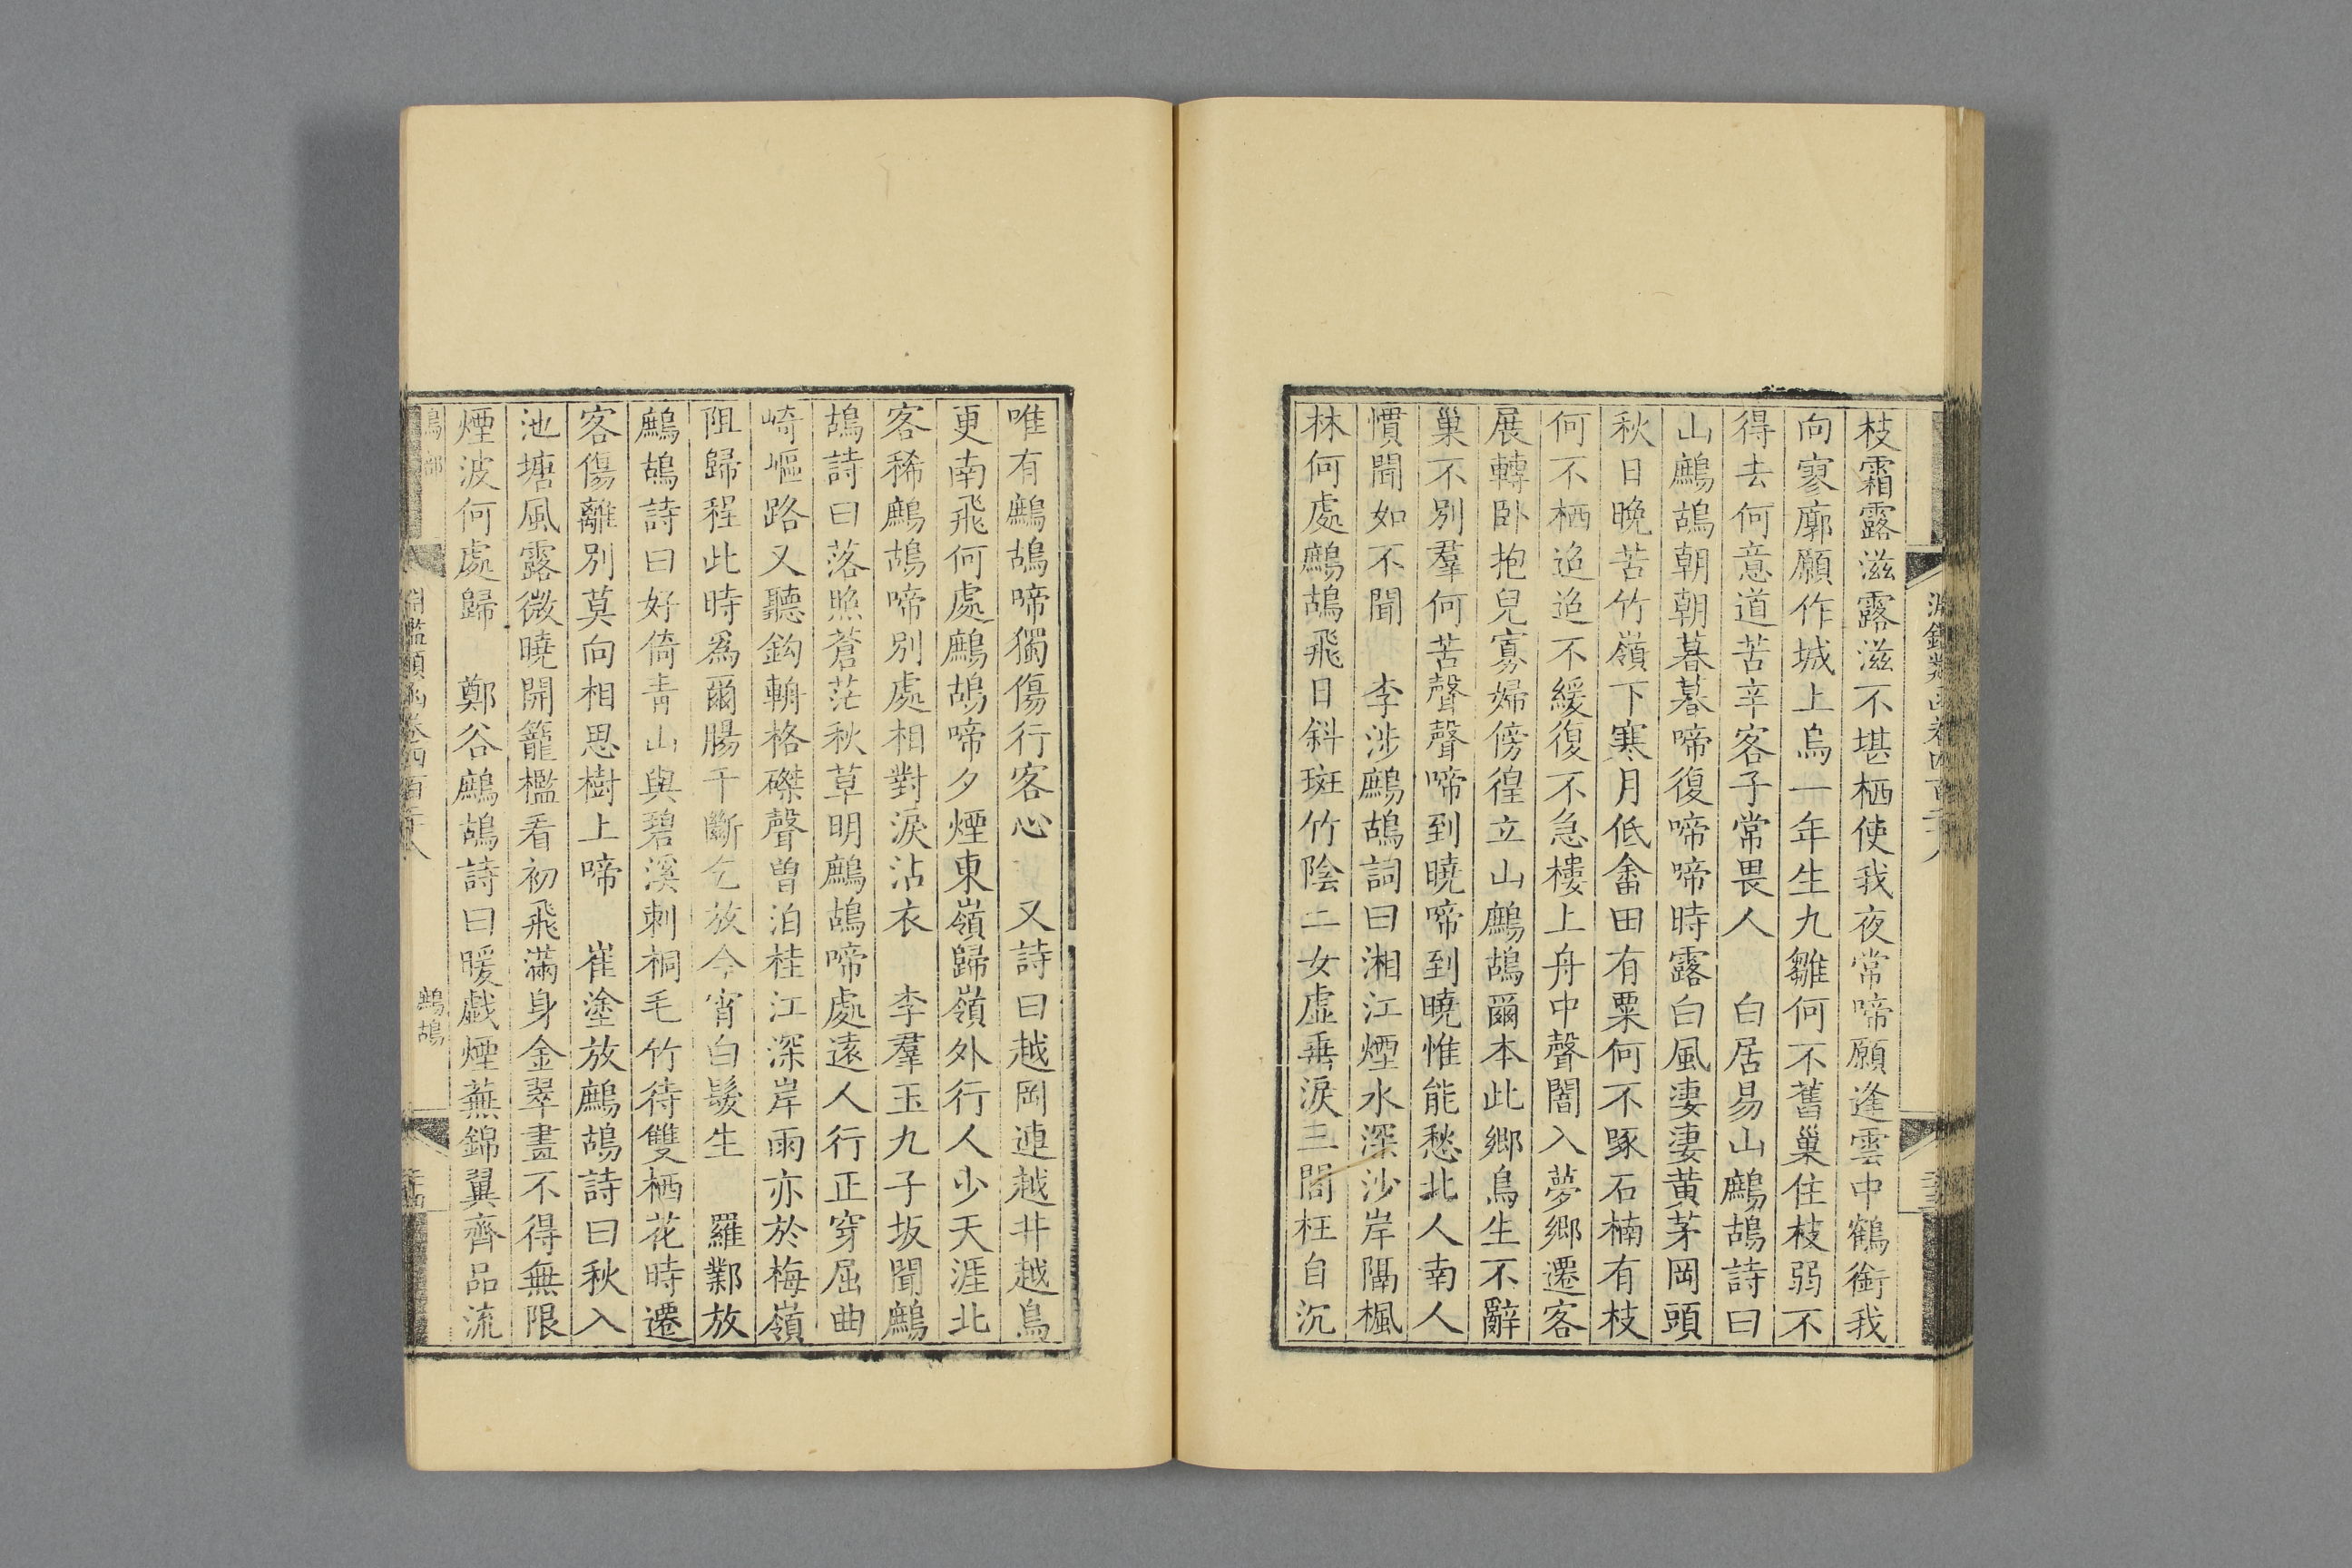 枝霜露滋露滋不堪栖使我夜常啼願逢雲中鶴銜我
向寥廓願作城上烏一年生九雛何不舊巢住枝弱不
得去何意道苦辛客子常畏人　白居易山鷓鴣詩曰
山鷓鴣朝朝暮暮啼復啼啼時露白風淒淒黄茅岡頭
秋日晚苦竹嶺下寒月低畬田有粟何不啄石楠有枝
何不栖迢迢不緩復不急樓上舟中聲闇入夢鄉遷客
展轉卧抱兒寡婦傍徨立山鷓鴣爾本此鄉鳥生不辭
巢不別羣何苦聲聲啼到曉啼到曉惟能愁北人南人
慣聞如不聞　李涉鷓鴣詞曰湘江煙水深沙岸隔楓
林何處鷓鴣飛日斜斑竹陰二女虛垂淚三閭枉自沉
唯有鷓鴣啼獨傷行客心　又詩曰越岡連越井越鳥
更南飛何處鷓鴣啼夕煙東嶺歸嶺外行人少天涯北
客稀鷓鴣啼別處相對淚沾衣　李羣玉九子坂聞鷓
鴣詩曰落照蒼茫秋草明鷓鴣啼處遠人行正穿屈曲
崎嶇路又聽鈎輈格磔聲曽泊桂江深岸雨亦於梅嶺
阻歸程此時爲爾腸千斷乞放今宵白髮生　羅鄴放
鷓鴣詩曰好倚青山與碧溪刺桐毛竹待雙栖花時遷
客傷離別莫向相思樹上啼　崔塗放鷓鴣詩曰秋入
池塘風露微曉開籠檻看初飛滿身金翠畫不得無限
煙波何處歸　鄭谷鷓鴣詩曰暖戲煙蕪錦翼齊品流
鷓鴣